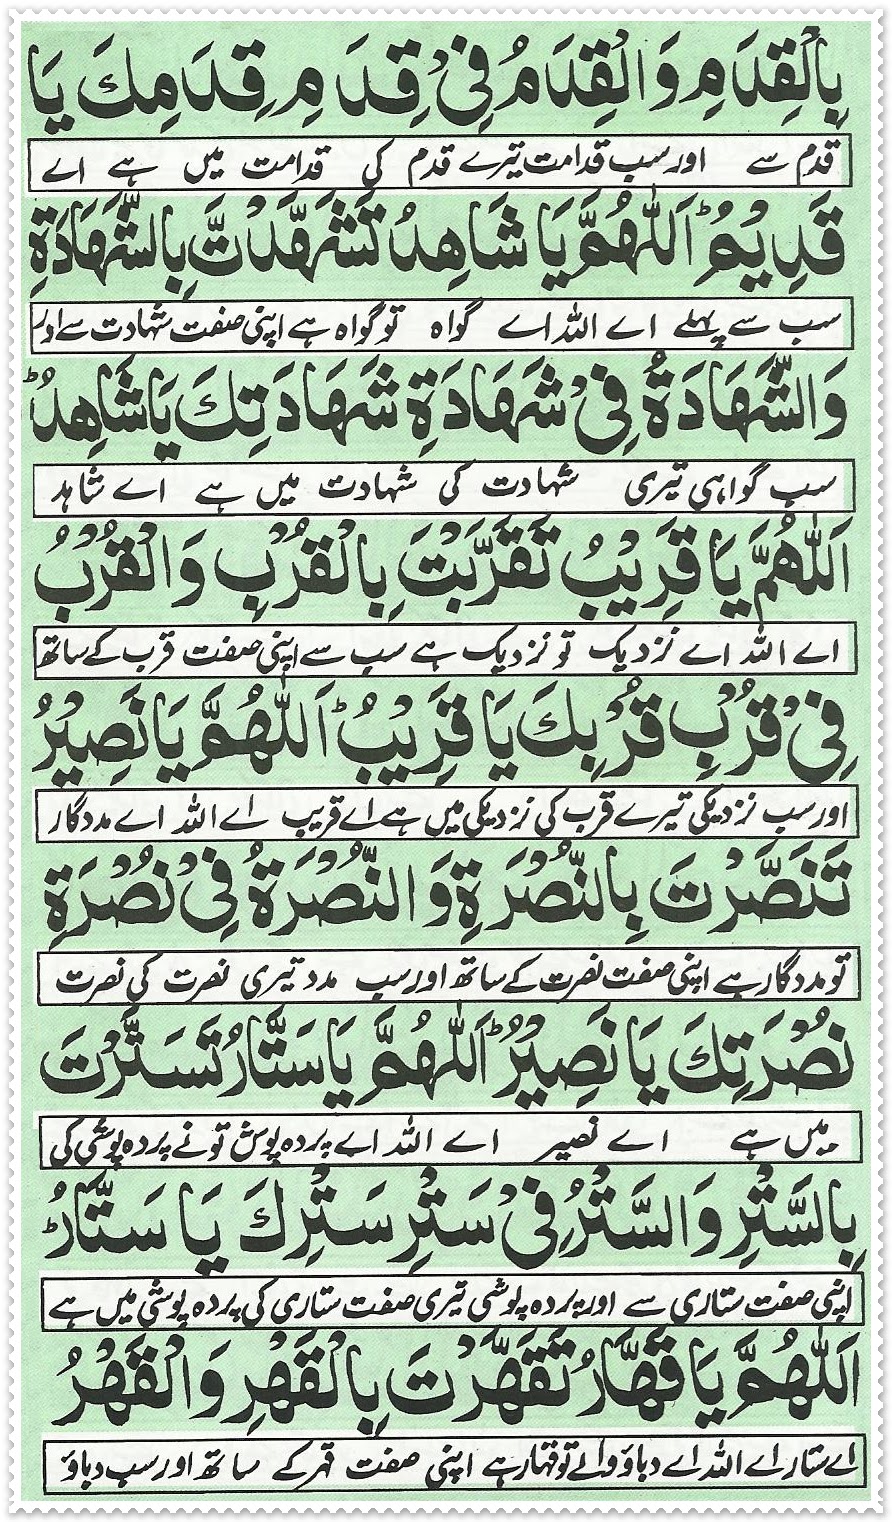 بِالْقِدَمِ وَالْقِدَمُ فِيْ قِدَمِ قِدَمِكَ يَا
قدم سے اور سب قدامت تیرے قدم کی قدامت میں ہے اے
قَدِيْمُ ؕ اَللّٰهُمَّ يَا شَاهِدُ تَشَهَّدْتَّ بِالشَّهَادَةِ
سب سے پہلے اے اللہ اے گواہ تو گواہ ہے اپنی صفت شہادت سے اور
وَالشَّهَادَةُ فِيْ شَهَادَةِ شَهَادَتِكَ يَا شَاهِدُ ؕ
سب گواہی تیری شہادت کی شہادت میں ہے اے شاہد
اَللّٰهُمَّ يَا قَرِيْبُ تَقَرَّبْتَ بِالْقُرْبِ وَالْقُرْبُ
اے اللہ اے نزدیک تو نزدیک ہے سب سے اپنی صفت قرب کے ساتھ
فِيْ قُرْبِ قُرْبِكَ يَا قَرِيْبُ ؕ اَللّٰهُمَّ يَا نَصِيْرُ
اور سب نزدیکی تیرے قرب کی نزدیکی میں ہے اے قریب اے اللہ اے مددگار
تَنَصَّرْتَ بِالنُّصْرَةِ وَ النُّصْرَةُ فِيْ نُصْرَةِ
تو مددگار ہے اپنی صفت نصرت کے ساتھ اور سب مدد تیری نصرت کی نصرت
نُصْرَتِكَ يَا نَصِيْرُ ؕ اَللّٰهُمَّ يَا سَتَّارُ تَسَتَّرْتَ
میں ہے اے نصیر اے اللہ اے پردہ پوش تو نے پردہ پوشی کی
بِالسَّتْرِ وَالسَّتْرُ فِيْ سَتْرِ سَتْرِكَ يَا سَتَّارُ ؕ
اپنی صفت ستاری سے اور پردہ پوشی تیری صفت ستاری کی پردہ پوشی میں ہے
اَللّٰهُمَّ يَا قَهَّارُ تَقَهَّرْتَ بِالْقَهْرِ وَالْقَهْرُ
اے ستار اے اللہ اے دباؤ والے تو قہار ہے اپنی صفت قہر کے ساتھ اور سب دباؤ